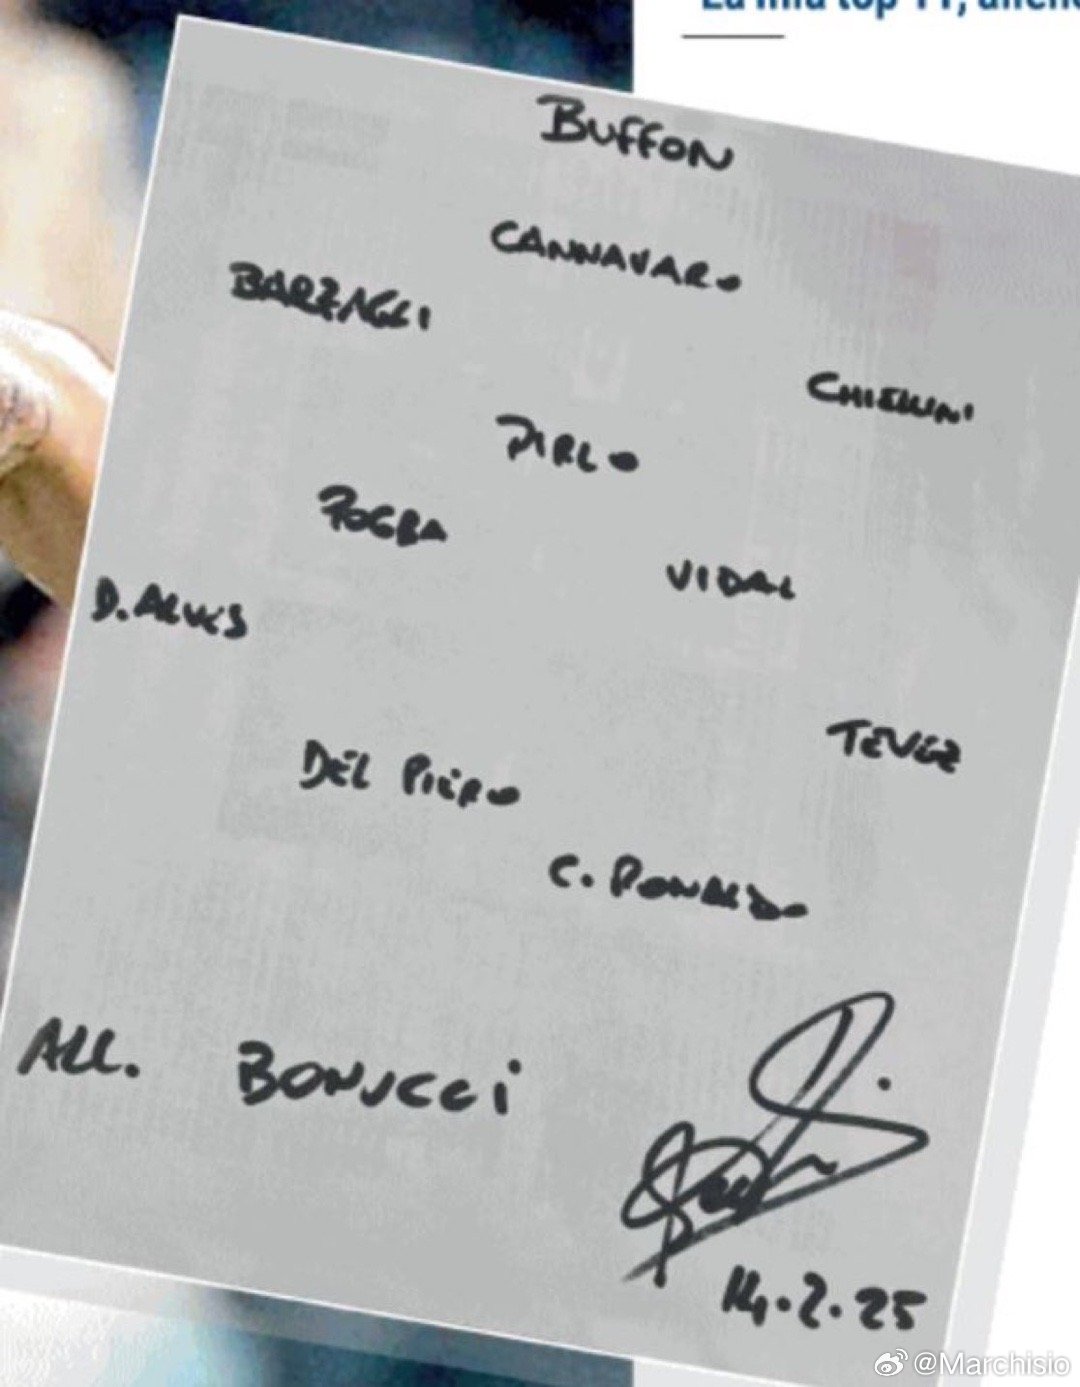 La mia top 11,
BUFFON
CANNAVARO
BARZAGLI
CHIELLINI
PIRLO
POGBA
VIDAL
D. ALVES
TEVEZ
DEL PIERO
C. RONALDO
ALL. BONUCCI
14.2.25
@Marchisio